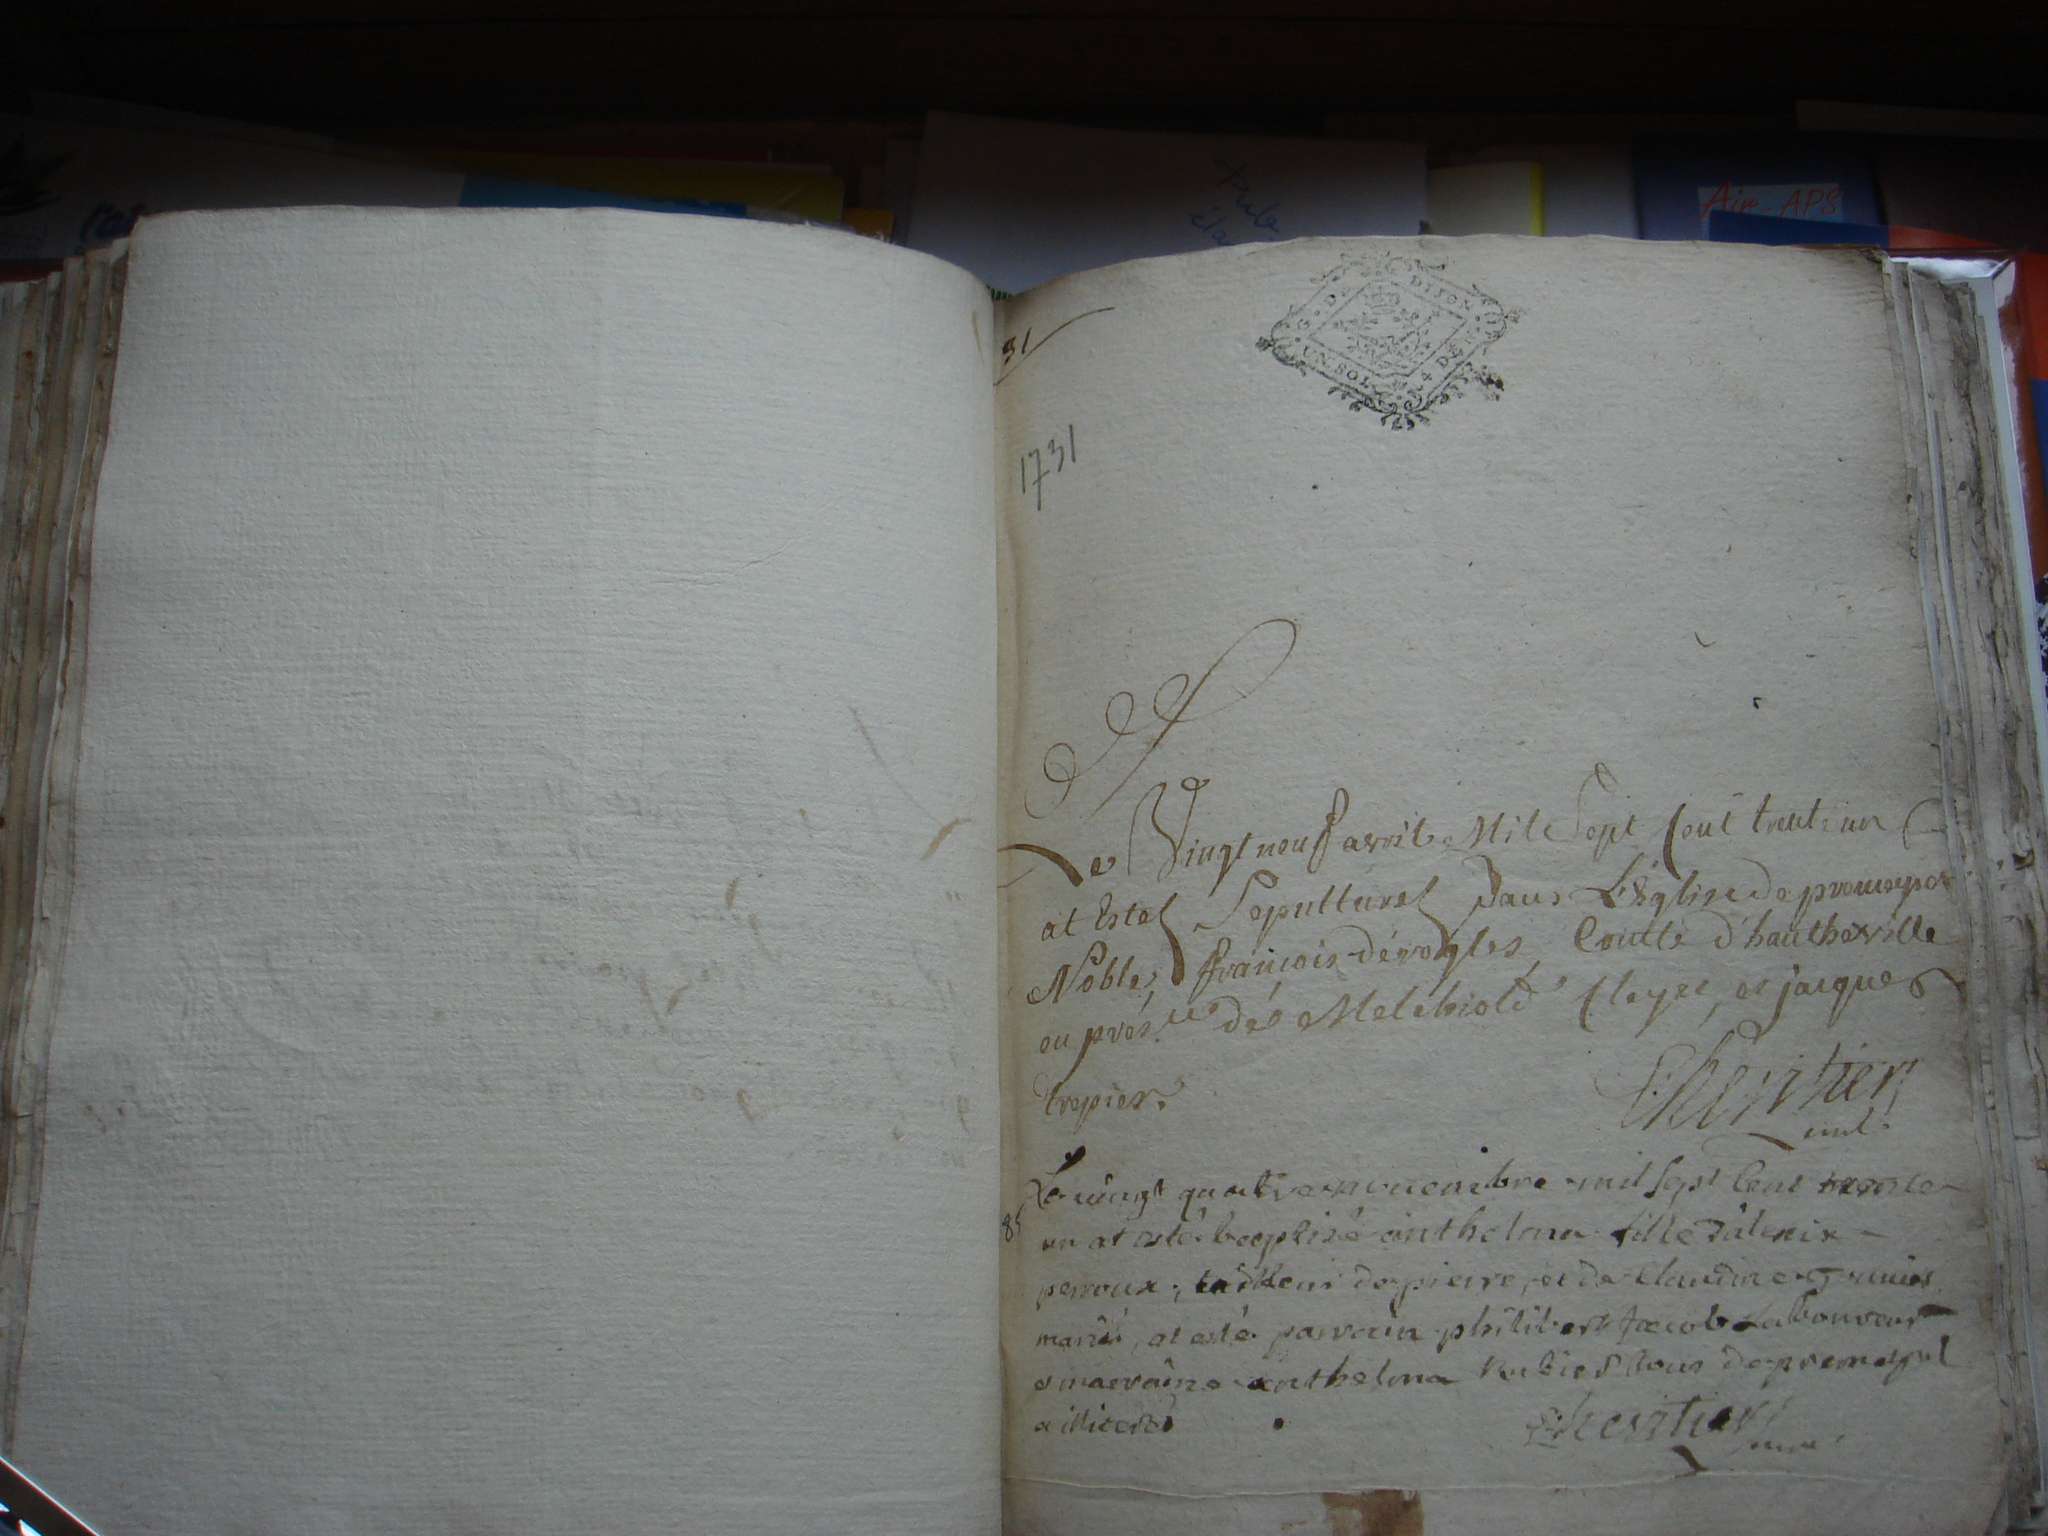 Air-APS
31
G. DE DIJON
UN. SOL. 4 DEN.
1731
Le Vingt neuf avril Mil Sept Cent trent'un
at Esté Sepulturé Dans L'Eglise de premeyzel
Noble françois dérogles Comte d'hautheville
en prés.ce dé Melchiold Cleyre, et jacque
trepier.
Lheritier
curé
Le vingt quatre novembre mil sept cent trente
85
un at esté baptisé anthelma fille d'alexix
perroux, tailleur de pierre, et de Claudine
mariés, at esté parrain philibert Jacob Labboureur
e marraine anthelma tous de premeyzel
e illiterés
Lheritier
curé